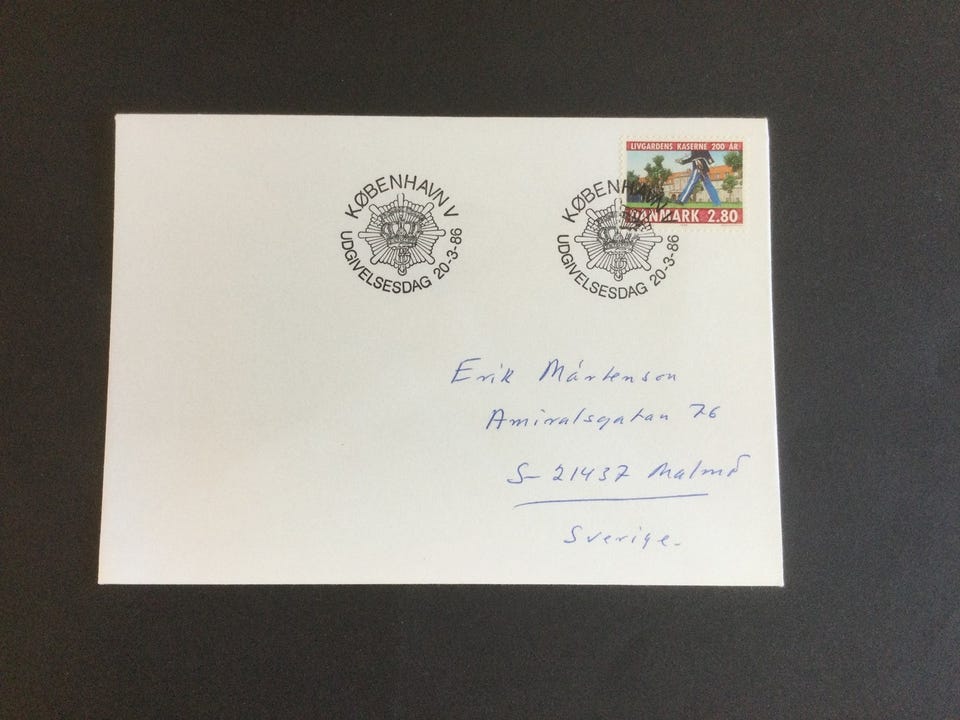 LIVGARDENS KASERNE 200 ÅR
DANMARK 2.80
KØBENHAVN V
UDGIVELSESDAG 20-3-86
KØBENHAVN
UDGIVELSESDAG 20-3-86
Erik Mårtenson
Amiralsgatan 76
S- 21437 Malmö
Sverige.